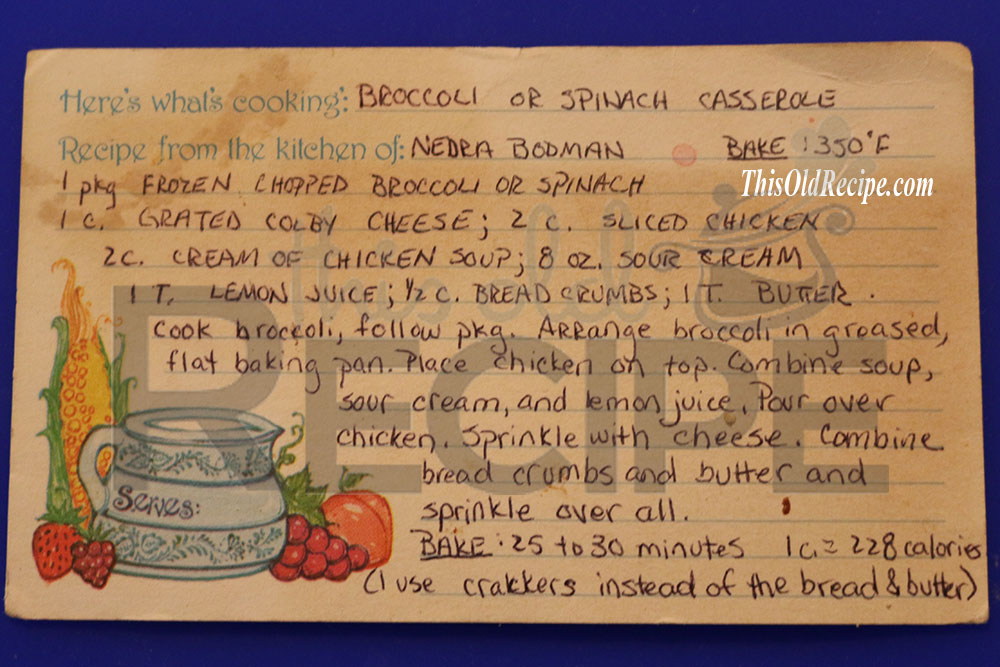 Here's what's cooking: BROCCOLI OR SPINACH CASSEROLE
Recipe from the kitchen of: NEDRA BODMAN BAKE: 350°F
ThisOldRecipe.com
1 pkg FROZEN CHOPPED BROCCOLI OR SPINACH
1 c. GRATED COLBY CHEESE; 2 c. SLICED CHICKEN
2C. CREAM OF CHICKEN SOUP; 8 OZ. SOUR CREAM
1 T. LEMON JUICE; 1/2 C. BREAD CRUMBS; 1 T. BUTTER.
Cook broccoli, follow pkg. Arrange broccoli in greased,
flat baking pan. Place chicken on top. Combine soup,
sour cream, and lemon juice. Pour over
chicken. Sprinkle with cheese. Combine
bread crumbs and butter and
sprinkle over all.
BAKE: 25 to 30 minutes 1 c. = 228 calories
(I use crakkers instead of the bread & butter)
Serves:
this old
RECIPE